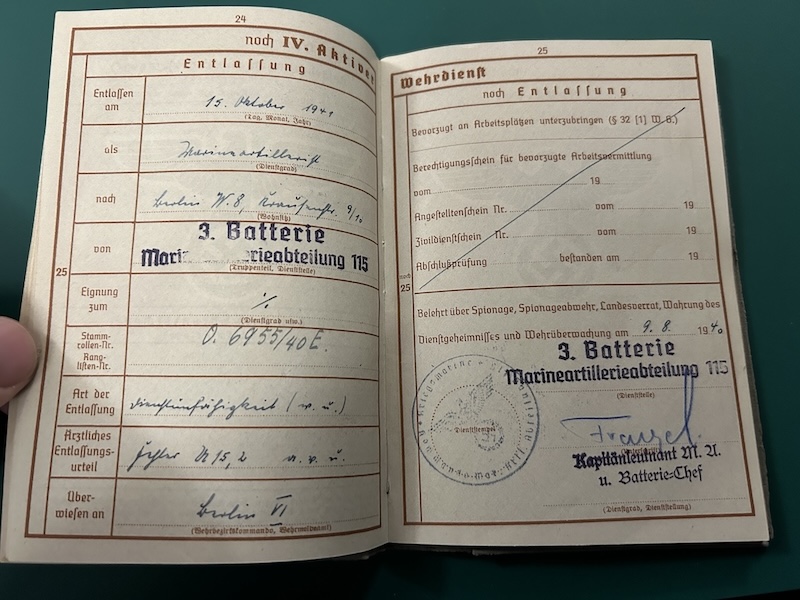 24
noch IV. Aktiver
Entlassung
Entlassen am
15. Oktober 1941
(Tag, Monat, Jahr)
als
Marineartillerist
(Dienstgrad)
nach
Berlin W. 8, Krausenstr. 9/10
(Wohnsitz)
von
3. Batterie
Marineartillerieabteilung 115
(Truppenteil, Dienststelle)
25
Eignung zum
(Dienstgrad usw.)
Stamm-
rollen-Nr.
Rang-
listen-Nr.
O. 6955/40 E.
Art der
Entlassung
Dienstunfähigkeit (w. u.)
Ärztliches
Entlassungs-
urteil
Fehler A 15,2 a. v. u.
Über-
wiesen an
Berlin VI
(Wehrbezirkskommando, Wehrmeldeamt)
25
Wehrdienst
noch Entlassung
Bevorzugt an Arbeitsplätzen unterzubringen (§ 32 [1] W. G.)
Berechtigungsschein für bevorzugte Arbeitsvermittlung
vom 19
Angestelltenschein Nr. vom 19
Zivildienstschein Nr. vom 19
Abschlußprüfung bestanden am 19
noch
25
Belehrt über Spionage, Spionageabwehr, Landesverrat, Wahrung des
Dienstgeheimnisses und Wehrüberwachung am 9. 8. 1940
3. Batterie
Marineartillerieabteilung 115
(Dienststelle)
Dienststempel
Kapitänleutnant M. A.
u. Batterie-Chef
(Dienstgrad, Dienststellung)